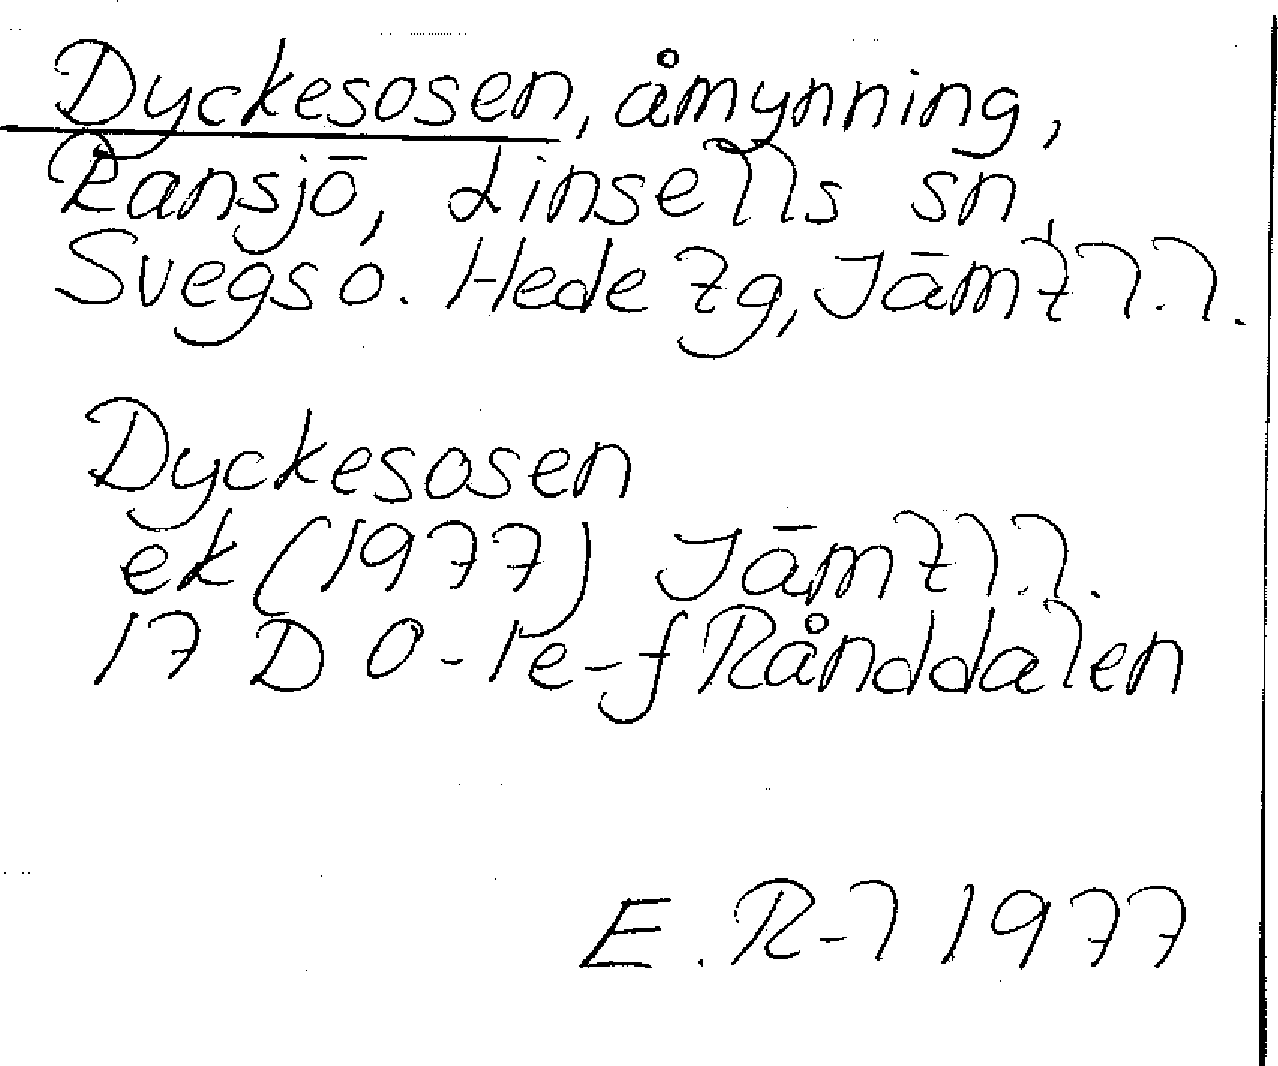 Dyckesosen, åmynning,
Ransjö, Linsells sn,
Svegs o. Hede tg, Jämtl.l.
Dyckesosen
ek (1977) Jämtl.l.
17 D 0-1 e-f Rånddalen
E. R-l 1977